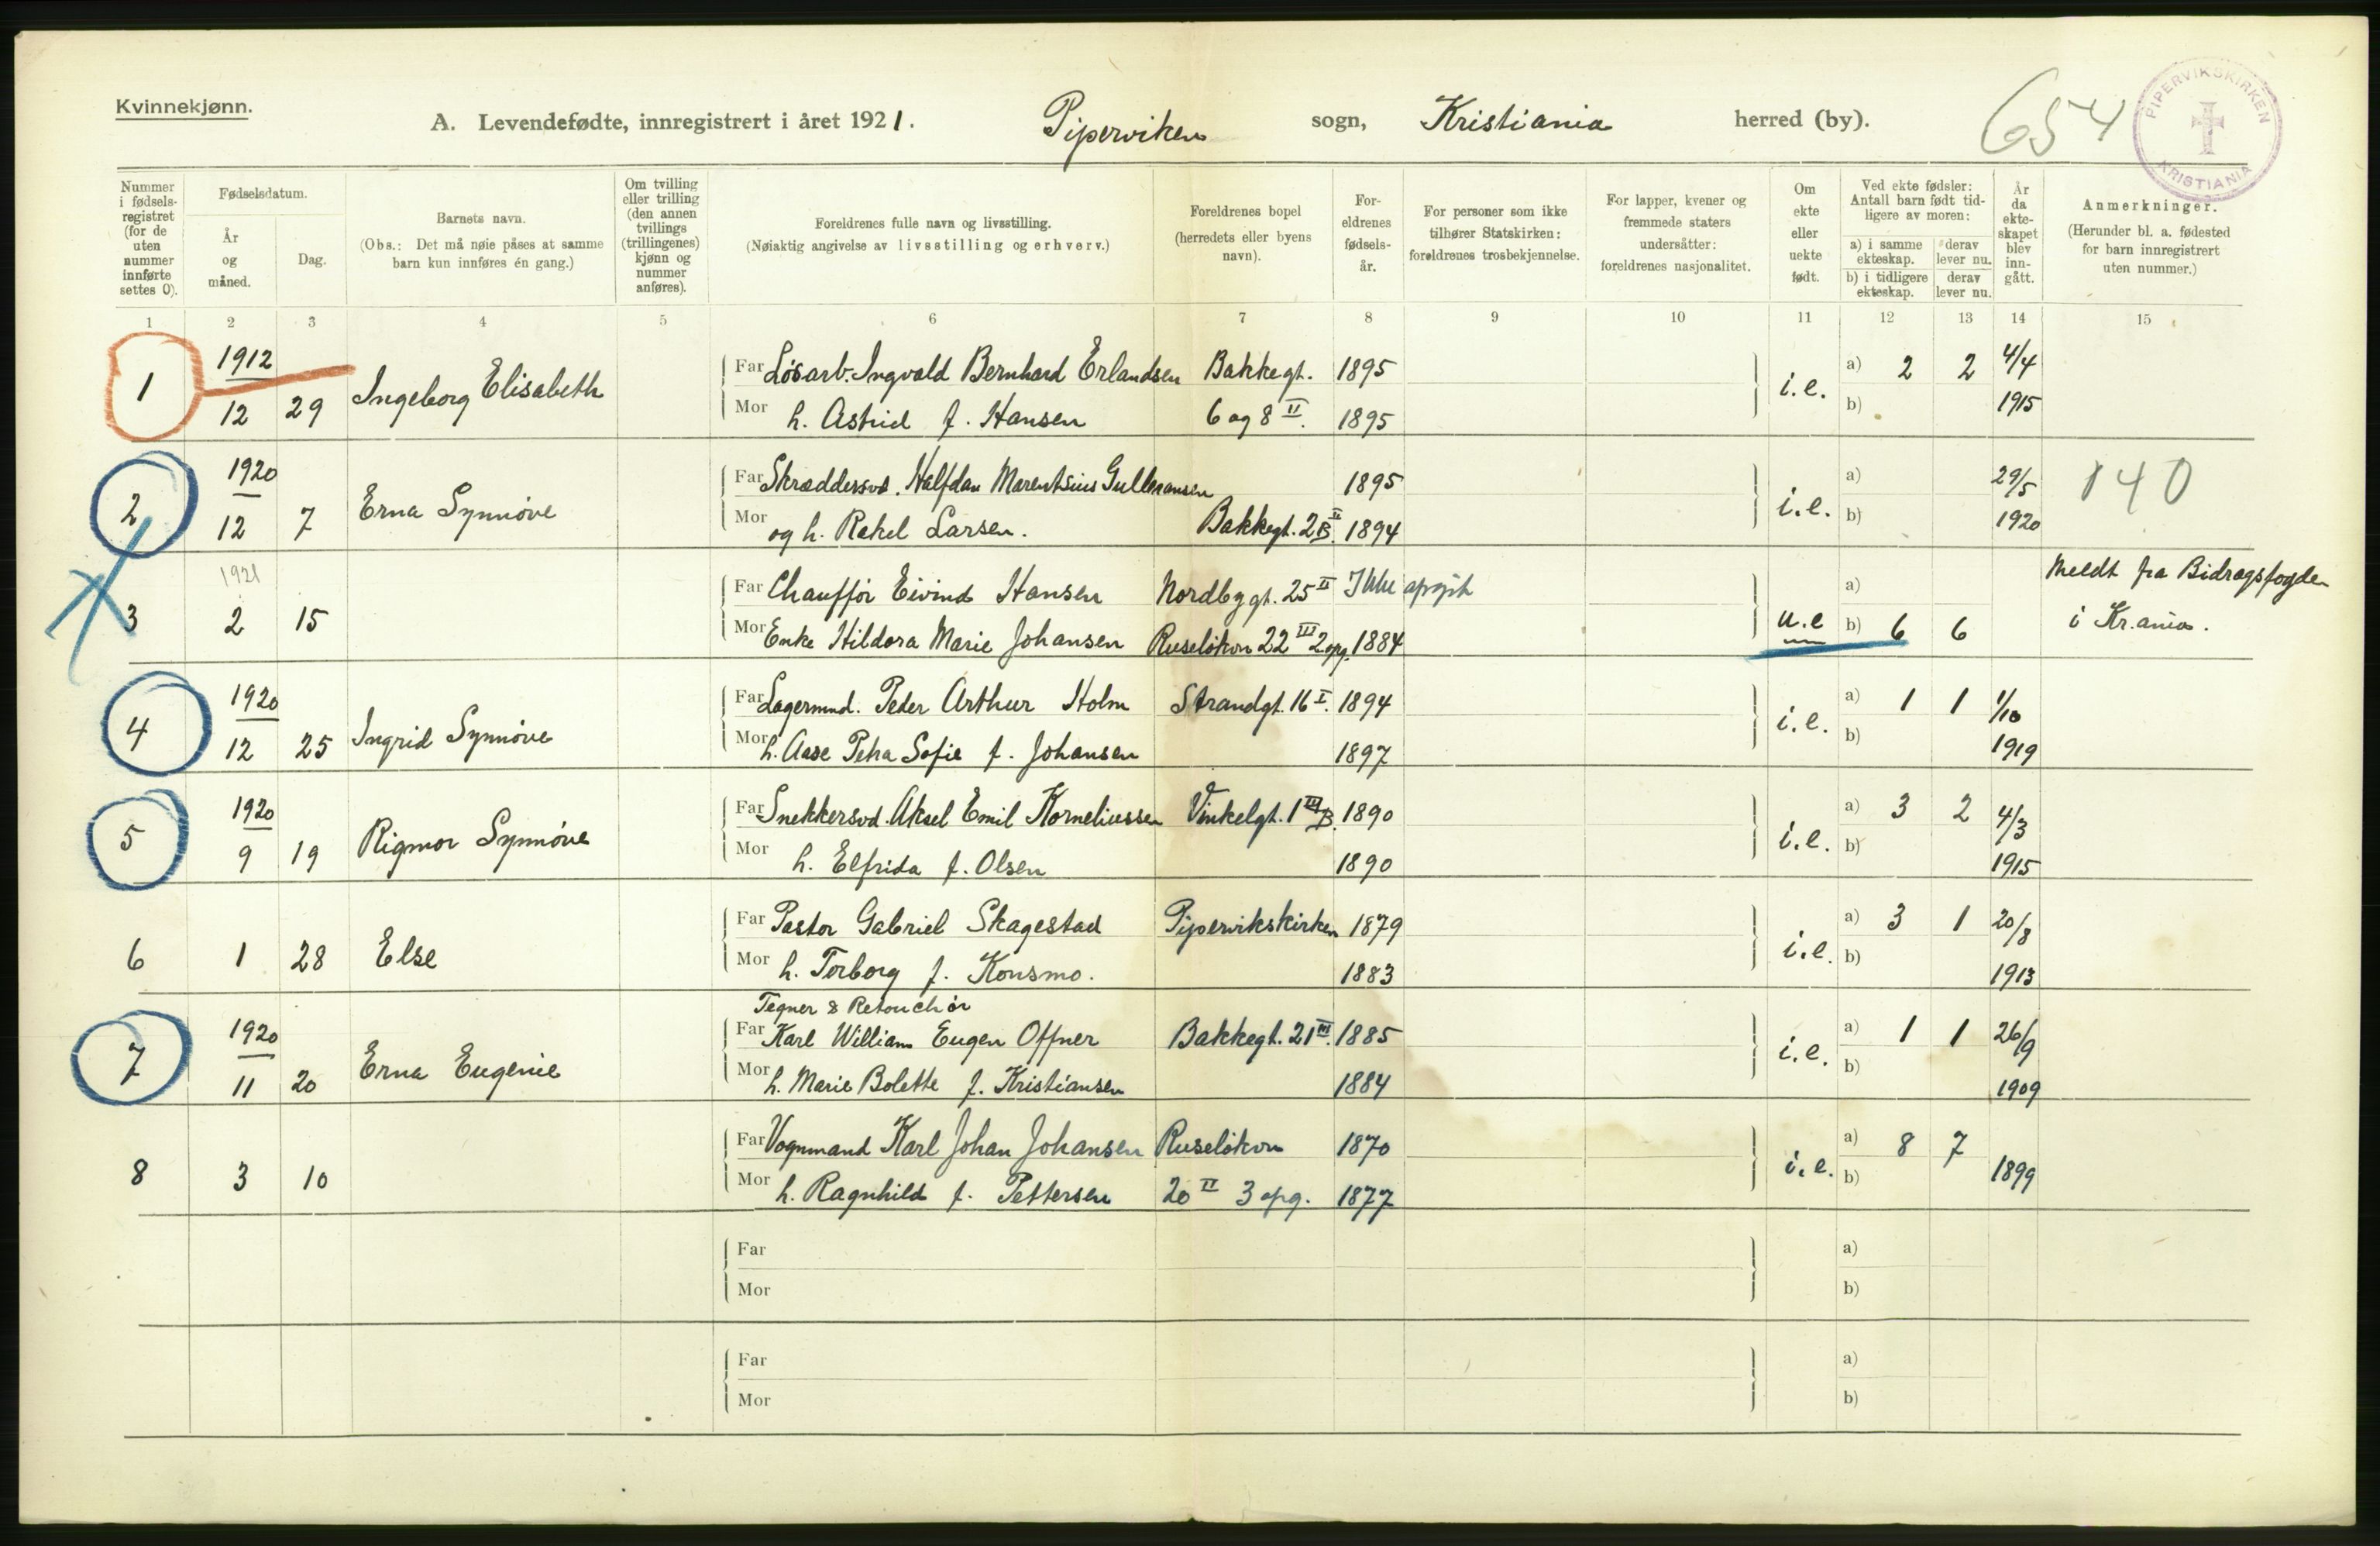 Kvinnekjønn.
A. Levendefødte, innregistrert i året 1921. Piperviken sogn, Kristiania herred (by). 654
PIPERVIKSKIRKEN KRISTIANIA
Nummer i fødselsregistret (for de uten nummer innførte settes 0).
Fødselsdatum.
År og måned.
Dag.
Barnets navn.
(Obs.: Det må nøie påses at samme barn kun innføres én gang.)
Om tvilling eller trilling (den annen tvillings (trillingenes) kjønn og nummer anføres).
Foreldrenes fulle navn og livsstilling.
(Nøiaktig angivelse av livsstilling og erhverv.)
Foreldrenes bopel (herredets eller byens navn).
Foreldrenes fødselsår.
For personer som ikke tilhører Statskirken: foreldrenes trosbekjennelse.
For lapper, kvener og fremmede staters undersåtter: foreldrenes nasjonalitet.
Om ekte eller uekte født.
Ved ekte fødsler: Antall barn født tidligere av moren:
a) i samme ekteskap. derav lever nu.
b) i tidligere ekteskap. derav lever nu.
År da ekteskapet blev inngått.
Anmerkninger.
(Herunder bl. a. fødested for barn innregistrert uten nummer.)
1 2 3 4 5 6 7 8 9 10 11 12 13 14 15
1 1912 12 29 Ingeborg Elisabeth
Far Løsarb. Ingvald Bernhard Erlandsen Bakkegt. 1895 i.e. a) 2 2 4/4
Mor h. Astrid f. Hansen 6 og 8 II. 1895 b) 1915
2 1920 12 7 Erna Synnøve
Far Skræddersvd. Halfdan Marentsius Gulbransen 1895 i.e. a) 29/5 140
Mor og h. Rakel Larsen. Bakkegt. 2B II. 1894 b) 1920
3 1921 2 15
Far Chauffør Eivind Hansen Nordbygt. 25 II Ikke opgit a) Meldt fra Bidragsfogden
Mor Enke Hildora Marie Johansen Ruseløkvn 22 III 2 opg. 1884 u.e b) 6 6 i Kr.ania.
4 1920 12 25 Ingrid Synnøve
Far Lagermnd. Peder Arthur Holm Strandgt. 16 I. 1894 i.e. a) 1 1 1/10
Mor h. Aase Petra Sofie f. Johansen 1897 b) 1919
5 1920 9 19 Rigmor Synnøve
Far Snekkersvd. Aksel Emil Korneliussen Vinkelgt. 1 III B. 1890 i.e. a) 3 2 4/3
Mor h. Elfrida f. Olsen 1890 b) 1915
6 1 28 Else
Far Pastor Gabriel Skagestad Pipervikskirken 1879 i.e. a) 3 1 20/8
Mor h. Torborg f. Konsmo. 1883 b) 1913
7 1920 11 20 Erna Eugenie
Tegner & Retouchør
Far Karl William Eugen Offner Bakkegt. 21 III. 1885 i.e. a) 1 1 26/9
Mor h. Marie Bolette f. Kristiansen 1884 b) 1909
8 3 10
Far Vognmand Karl Johan Johansen Ruseløkvn 1870 i.e. a) 8 7
Mor h. Ragnhild f. Pettersen 20 II 3 opg. 1877 b) 1899
Far a)
Mor b)
Far a)
Mor b)